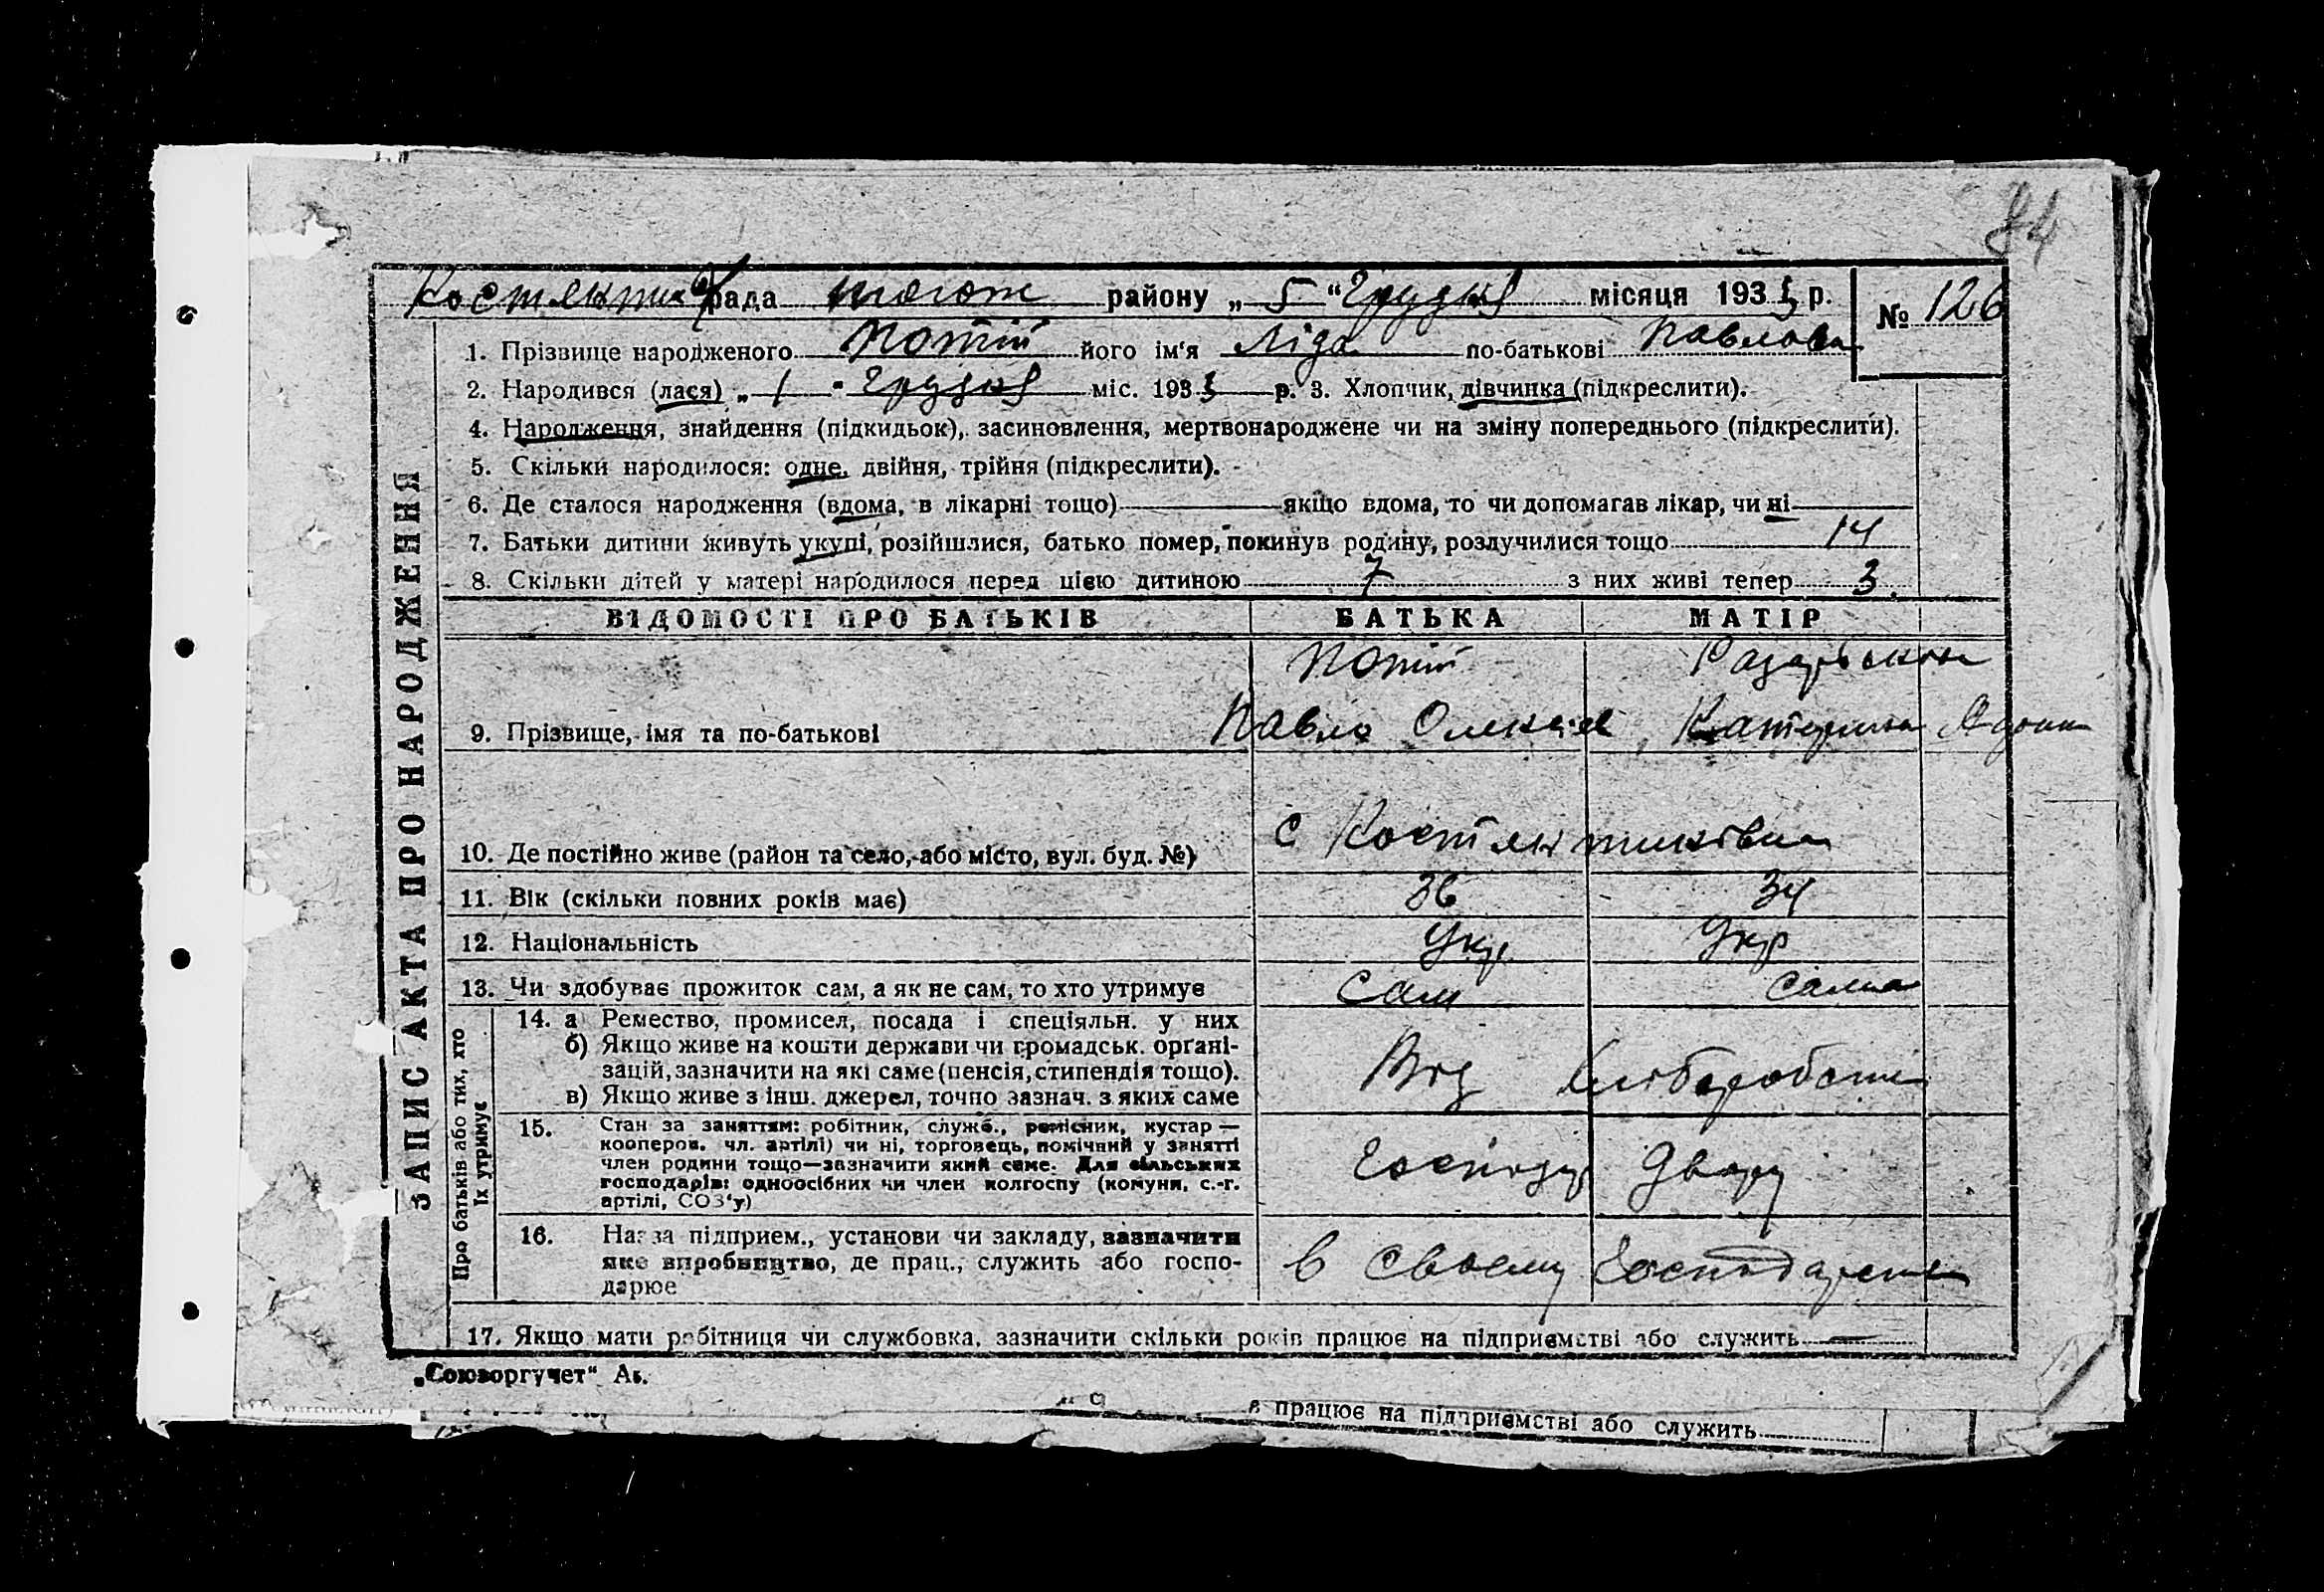 84
рада району „ 5 “ Грудня місяця 193 р. № 126
1. Прізвище народженого Потій його ім'я Ліда по-батькові Павлова
2. Народився (лася) „ 1 " Грудня міс. 193 р. 3. Хлопчик, дівчинка (підкреслити).
4. Народження, знайдення (підкидьок), засиновлення, мертвонароджене чи на зміну попереднього (підкреслити).
5. Скільки народилося: одне, двійня, трійня (підкреслити).
6. Де сталося народження (вдома, в лікарні тощо) якщо вдома, то чи допомагав лікар, чи ні
7. Батьки дитини живуть укупі, розійшлися, батько помер, покинув родину, розлучилися тощо 14
8. Скільки дітей у матері народилося перед цією дитиною 7 з них живі тепер 3
ЗАПИС АКТА ПРО НАРОДЖЕННЯ
ВІДОМОСТІ ПРО БАТЬКІВ БАТЬКА МАТІР
Потій
9. Прізвище, імя та по-батькові Павло Олексієв Катерина
10. Де постійно живе (район та село, або місто, вул. буд. №) с
11. Вік (скільки повних років має) 36 34
12. Національність Укр. Укр
13. Чи здобуває прожиток сам, а як не сам, то хто утримує Сам сама
Про батьків або тих, хто
їх утримує
14. а Ремество, промисел, посада і спеціяльн. у них
б) Якщо живе на кошти держави чи громадськ. орґані-
зацій, зазначити на які саме (пенсія, стипендія тощо).
в) Якщо живе з інш. джерел, точно зазнач. з яких саме
Від хліборобства
15. Стан за заняттям: робітник, служб., ремісник, кустар —
кооперов. чл. артілі) чи ні, торговець, помічний у занятті
член родини тощо—зазначити який саме. Для сільських
господарів: одноосібних чи член колгоспу (комуни, с.-г.
артілі, СОЗ'у)
Господар двору
16. Назва підприєм., установи чи закладу, зазначити
яке виробництво, де прац., служить або госпо-
дарює
в своему господарстві
17. Якщо мати робітниця чи службовка, зазначити скільки років працює на підприємстві або служить —
„Союзоргучет“
в працює на підприємстві або служить